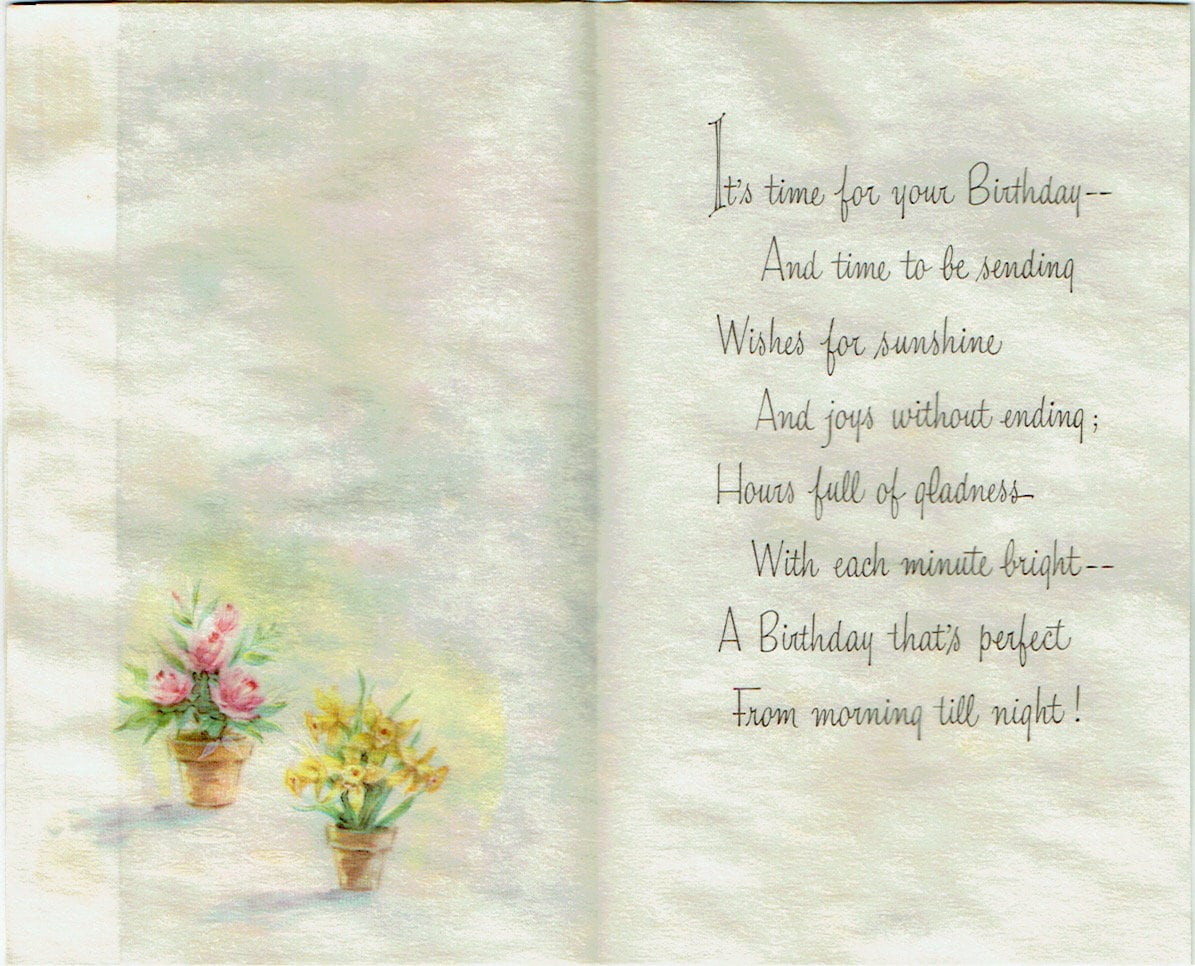 It's time for your Birthday--
And time to be sending
Wishes for sunshine
And joys without ending;
Hours full of gladness
With each minute bright--
A Birthday that's perfect
From morning till night!